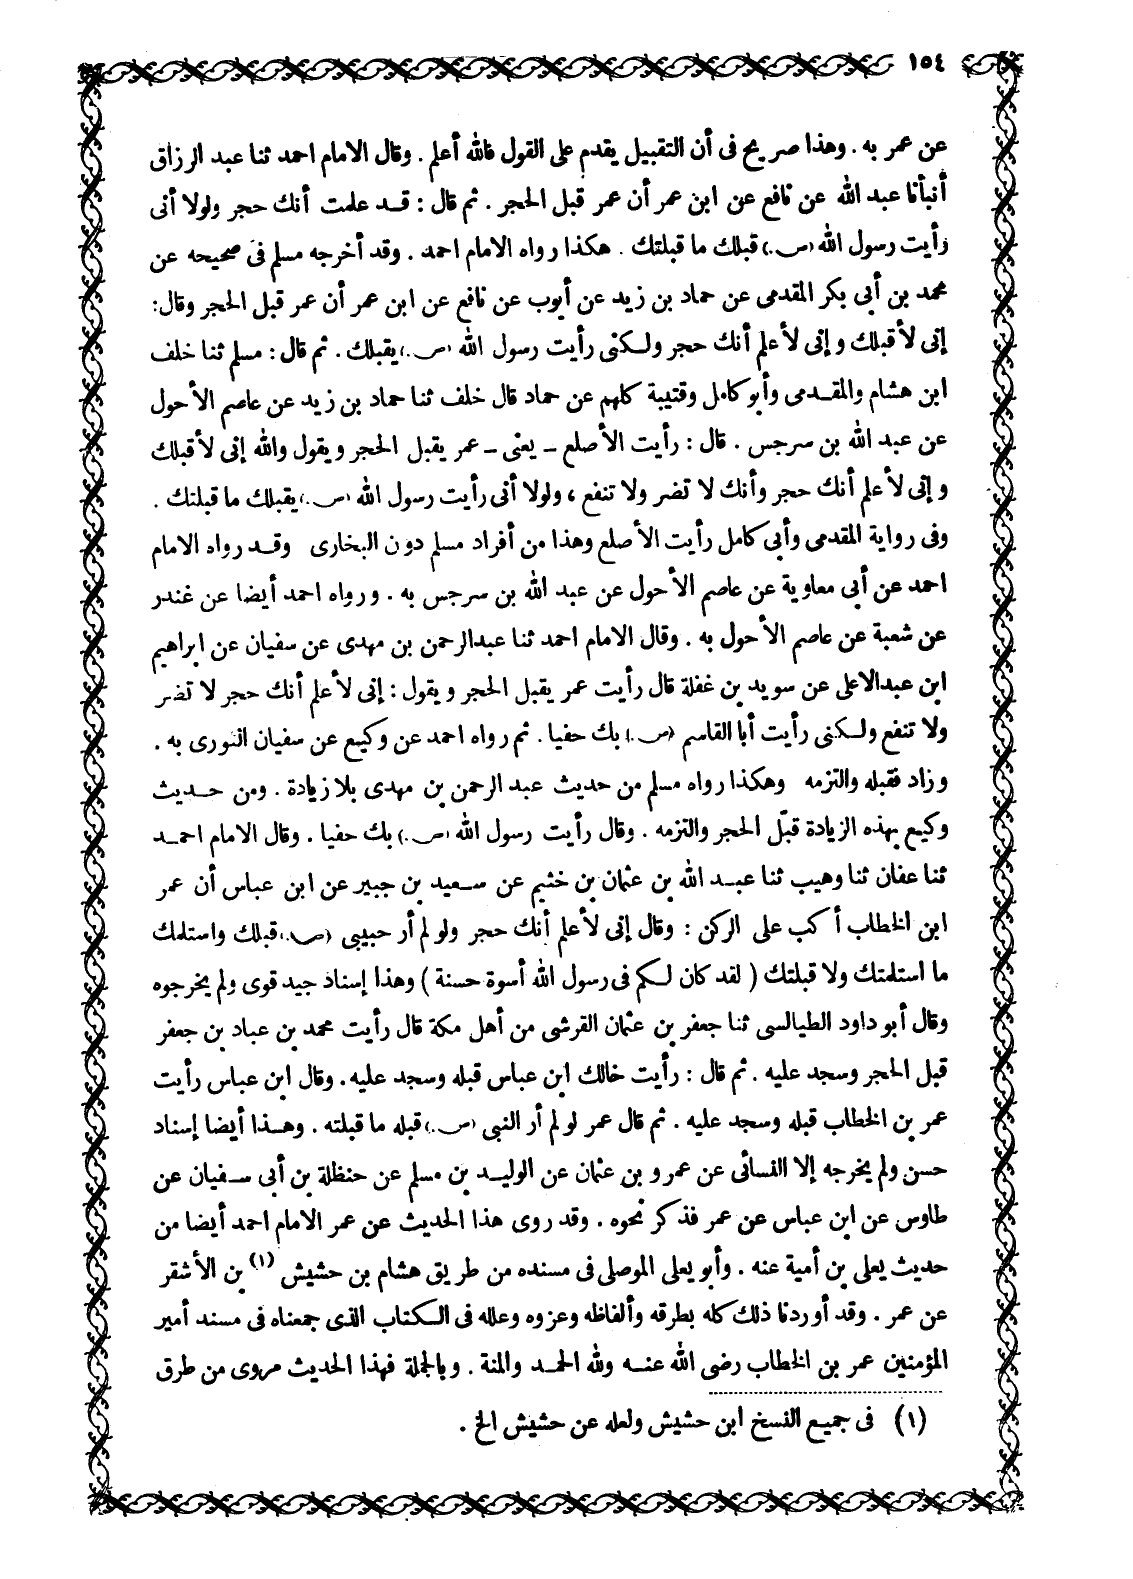 ١٥٤
عن عمر به . وهذا صريح فى أن التقبيل يقدم على القول فالله أعلم . وقال الامام احمد ثنا عبد الرزاق
أنبأنا عبد الله عن نافع عن ابن عمر أن عمر قبل الحجر . ثم قال : قد علمت أنك حجر ولولا أنى
رأيت رسول الله (س.) قبلك ما قبلتك . هكذا رواه الامام احمد . وقد أخرجه مسلم فى صحيحه عن
محمد بن أبى بكر المقدمى عن حماد بن زيد عن أيوب عن نافع عن ابن عمر أن عمر قبل الحجر وقال:
إنى لأقبلك وإنى لأعلم أنك حجر ولكنى رأيت رسول الله (س.) يقبلك . ثم قال : مسلم ثنا خلف
ابن هشام والمقدمى وأبو كامل وقتيبة كلهم عن حماد قال خلف ثنا حماد بن زيد عن عاصم الأحول
عن عبد الله بن سرجس . قال : رأيت الأصلع - يعنى - عمر يقبل الحجر ويقول والله إنى لأقبلك
وإنى لأعلم أنك حجر وأنك لا تضر ولا تنفع ، ولولا أنى رأيت رسول الله (س.) يقبلك ما قبلتك .
وفى رواية المقدمى وأبى كامل رأيت الأصلع وهذا من أفراد مسلم دون البخارى وقد رواه الامام
احمد عن أبى معاوية عن عاصم الأحول عن عبد الله بن سرجس به . ورواه احمد أيضا عن غندر
عن شعبة عن عاصم الأحول به . وقال الامام احمد ثنا عبدالرحمن بن مهدى عن سفيان عن ابراهيم
ابن عبدالاعلى عن سويد بن غفلة قال رأيت عمر يقبل الحجر ويقول : إنى لأعلم أنك حجر لا تضر
ولا تنفع ولكنى رأيت أبا القاسم (س.) بك حفيا . ثم رواه احمد عن وكيع عن سفيان الثورى به .
وزاد فقبله والتزمه وهكذا رواه مسلم من حديث عبد الرحمن بن مهدى بلا زيادة . ومن حديث
وكيع بهذه الزيادة قبّل الحجر والتزمه . وقال رأيت رسول الله (س.) بك حفيا . وقال الامام احمد
ثنا عفان ثنا وهيب ثنا عبد الله بن عثمان بن خثيم عن سعيد بن جبير عن ابن عباس أن عمر
ابن الخطاب أكب على الركن : وقال إنى لأعلم أنك حجر ولو لم أر حبيبى (س.) قبلك واستلمك
ما استلمتك ولا قبلتك ( لقد كان لكم فى رسول الله أسوة حسنة ) وهذا إسناد جيد قوى ولم يخرجوه
وقال أبو داود الطيالسى ثنا جعفر بن عثمان القرشى من أهل مكة قال رأيت محمد بن عباد بن جعفر
قبل الحجر وسجد عليه . ثم قال : رأيت خالك ابن عباس قبله وسجد عليه . وقال ابن عباس رأيت
عمر بن الخطاب قبله وسجد عليه . ثم قال عمر لو لم أر النبى (س.) قبله ما قبلته . وهذا أيضا إسناد
حسن ولم يخرجه إلا النسائى عن عمرو بن عثمان عن الوليد بن مسلم عن حنظلة بن أبى سفيان عن
طاوس عن ابن عباس عن عمر فذكر نحوه . وقد روى هذا الحديث عن عمر الامام احمد أيضا من
حديث يعلى بن أمية عنه . وأبو يعلى الموصلى فى مسنده من طريق هشام بن حشيش (١) بن الأشقر
عن عمر . وقد أوردنا ذلك كله بطرقه وألفاظه وعزوه وعلله فى الكتاب الذى جمعناه فى مسند أمير
المؤمنين عمر بن الخطاب رضى الله عنه ولله الحمد والمنة . وبالجملة فهذا الحديث مروى من طرق
(١) فى جميع النسخ ابن حشيش ولعله عن حشيش الخ .